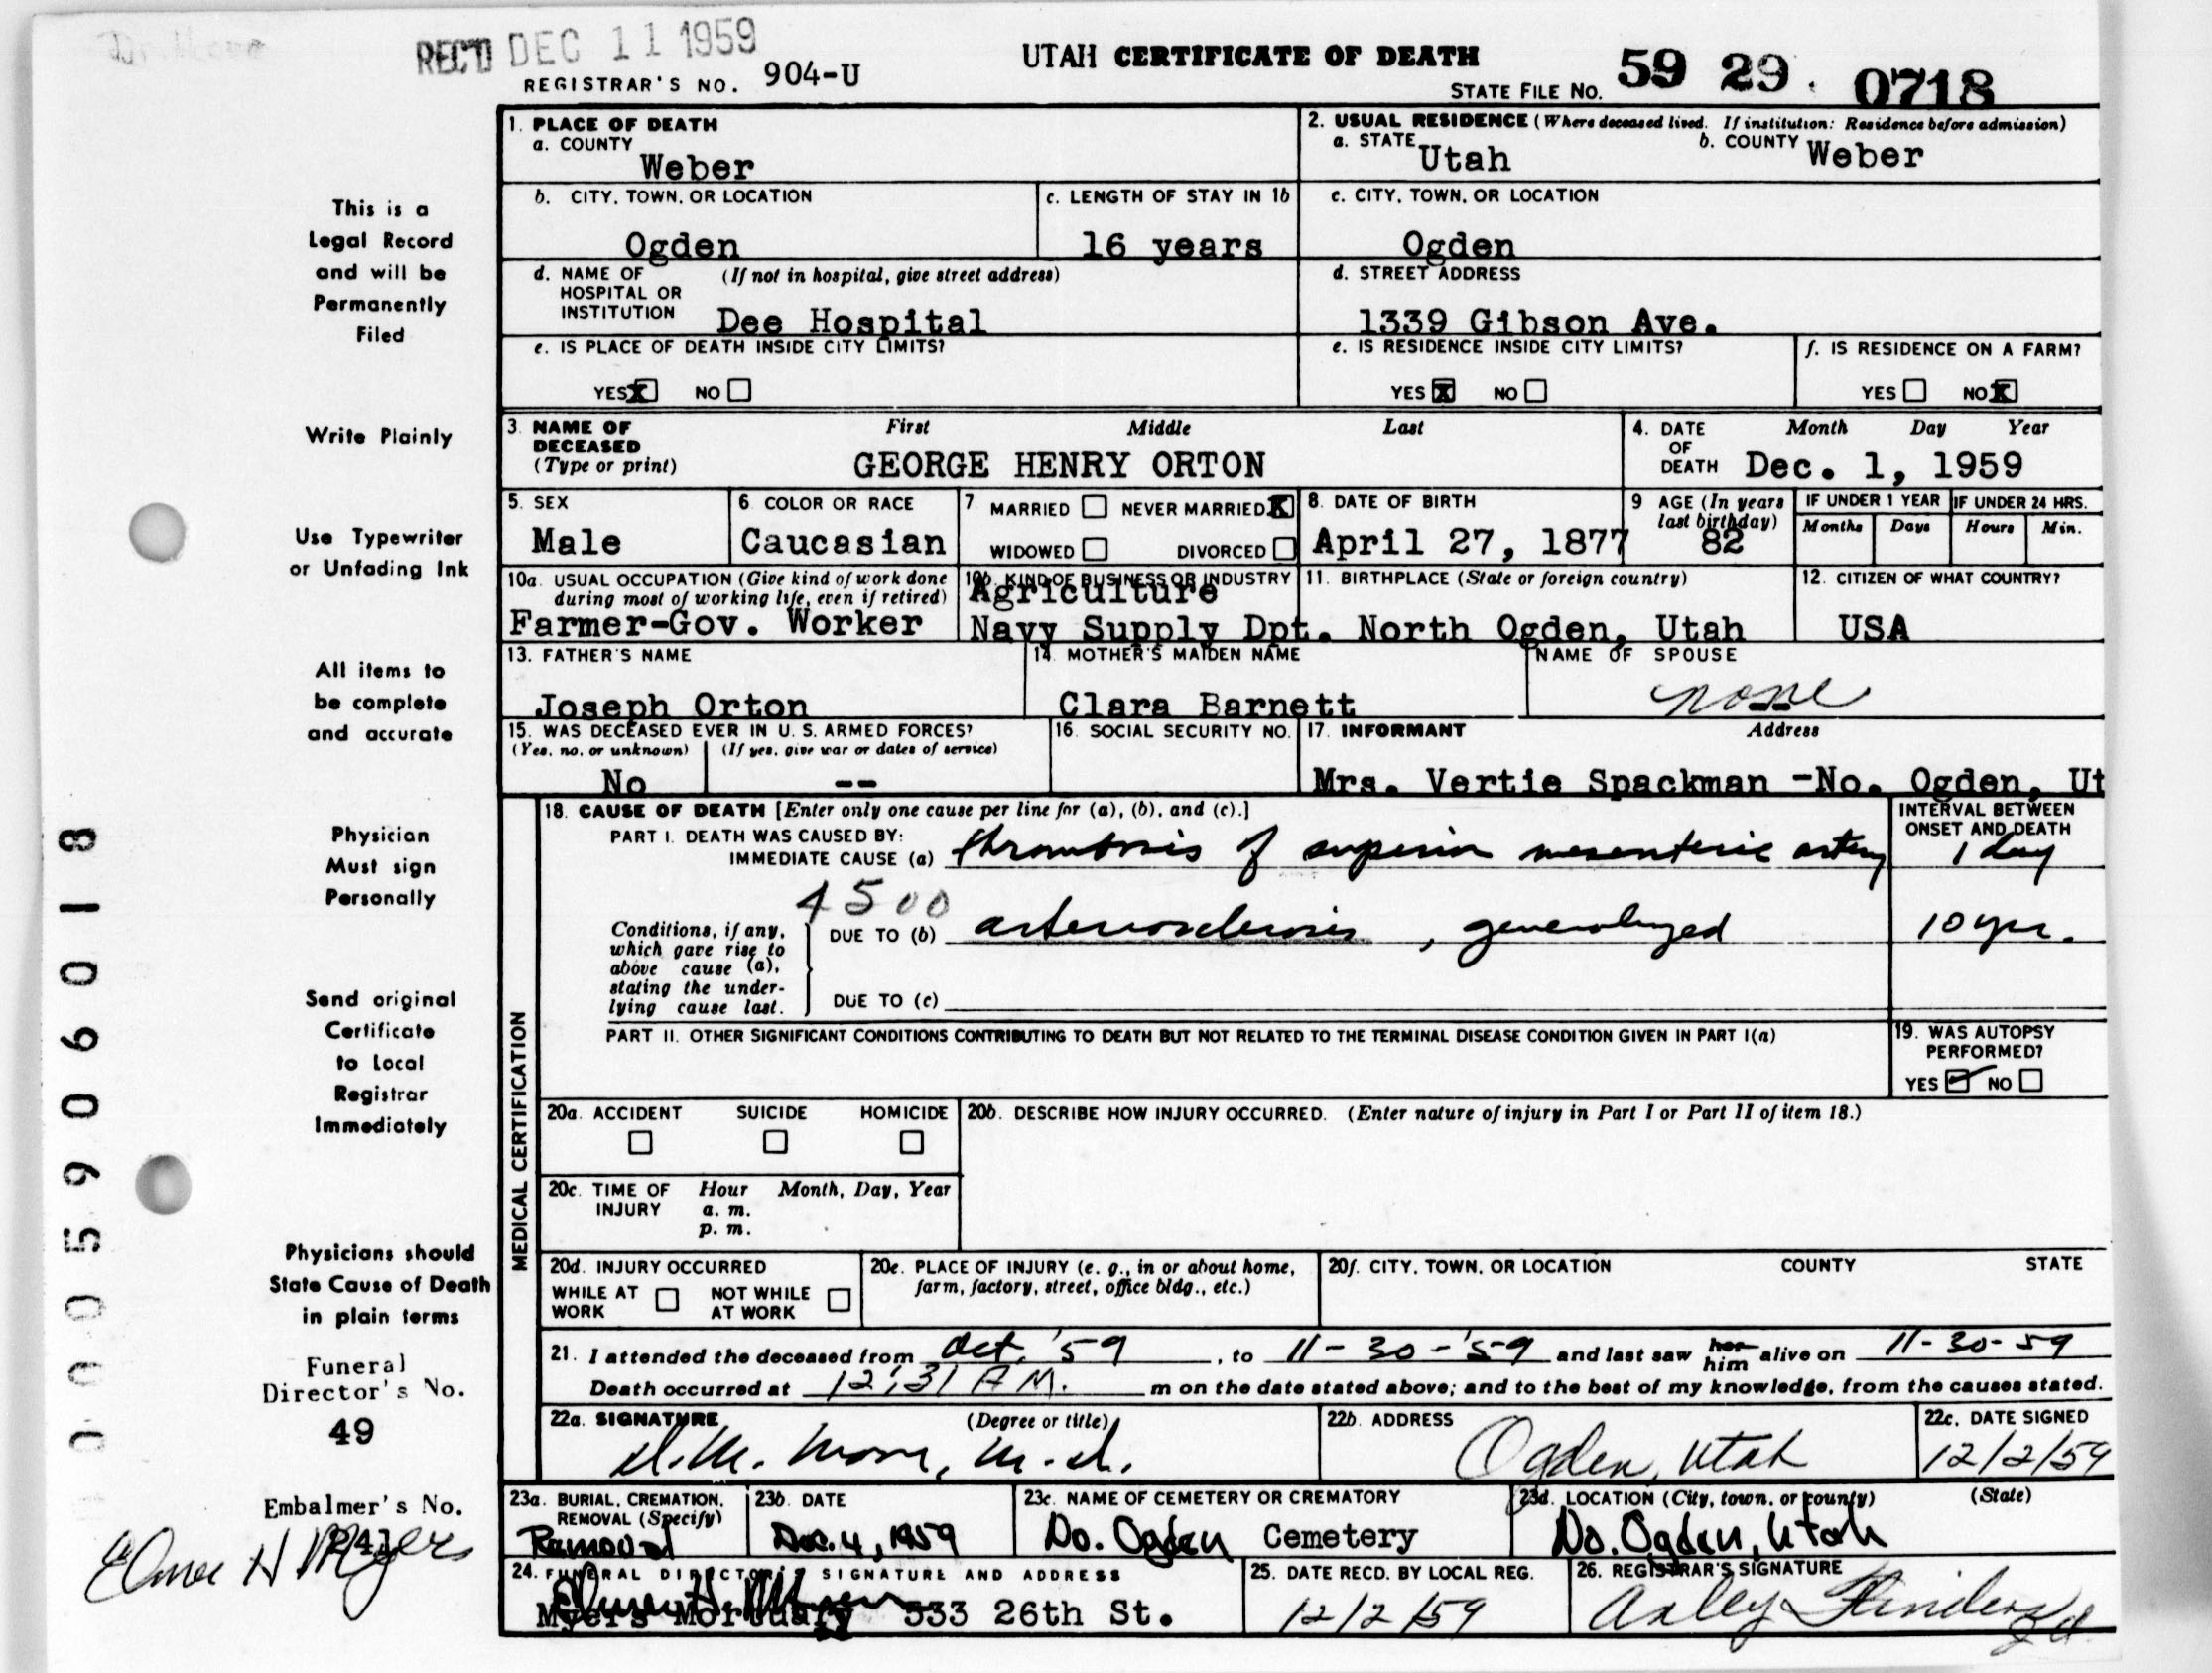 REC'D DEC 11 1959
UTAH CERTIFICATE OF DEATH
REGISTRAR'S NO. 904-U
STATE FILE No. 59 29 0718
This is a
Legal Record
and will be
Permanently
Filed
Write Plainly
Use Typewriter
or Unfading Ink
All items to
be complete
and accurate
Physician
Must sign
Personally
Send original
Certificate
to Local
Registrar
Immediately
Physicians should
State Cause of Death
in plain terms
Funeral
Director's No.
49
Embalmer's No.
Elmer H Myers
0005906018
1. PLACE OF DEATH
a. COUNTY
Weber
2. USUAL RESIDENCE (Where deceased lived. If institution: Residence before admission)
a. STATE Utah b. COUNTY Weber
b. CITY, TOWN, OR LOCATION
Ogden
c. LENGTH OF STAY IN 1b
16 years
c. CITY, TOWN, OR LOCATION
Ogden
d. NAME OF (If not in hospital, give street address)
HOSPITAL OR
INSTITUTION Dee Hospital
d. STREET ADDRESS
1339 Gibson Ave.
e. IS PLACE OF DEATH INSIDE CITY LIMITS?
YES X NO
e. IS RESIDENCE INSIDE CITY LIMITS?
YES X NO
f. IS RESIDENCE ON A FARM?
YES NO X
3. NAME OF DECEASED (Type or print)
First Middle Last
GEORGE HENRY ORTON
4. DATE OF DEATH
Month Day Year
Dec. 1, 1959
5. SEX
Male
6. COLOR OR RACE
Caucasian
7 MARRIED NEVER MARRIED X
WIDOWED DIVORCED
8. DATE OF BIRTH
April 27, 1877
9 AGE (In years last birthday)
82
IF UNDER 1 YEAR
Months Days
IF UNDER 24 HRS.
Hours Min.
10a. USUAL OCCUPATION (Give kind of work done
during most of working life, even if retired)
Farmer-Gov. Worker
10b. KIND OF BUSINESS OR INDUSTRY
Agriculture
Navy Supply Dpt.
11. BIRTHPLACE (State or foreign country)
North Ogden, Utah
12. CITIZEN OF WHAT COUNTRY?
USA
13. FATHER'S NAME
Joseph Orton
14. MOTHER'S MAIDEN NAME
Clara Barnett
NAME OF SPOUSE
none
15. WAS DECEASED EVER IN U. S. ARMED FORCES?
(Yes, no, or unknown) (If yes, give war or dates of service)
No --
16. SOCIAL SECURITY NO.
17. INFORMANT Address
Mrs. Vertie Spackman -No. Ogden, Ut
MEDICAL CERTIFICATION
18. CAUSE OF DEATH [Enter only one cause per line for (a), (b), and (c).]
INTERVAL BETWEEN
ONSET AND DEATH
PART I. DEATH WAS CAUSED BY:
IMMEDIATE CAUSE (a) thrombosis of superior mesenteric artery 1 day
4500
Conditions, if any,
which gave rise to
above cause (a),
stating the under-
lying cause last.
DUE TO (b) arteriosclerosis, generalized 10 yrs.
DUE TO (c)
PART II. OTHER SIGNIFICANT CONDITIONS CONTRIBUTING TO DEATH BUT NOT RELATED TO THE TERMINAL DISEASE CONDITION GIVEN IN PART I(a)
19. WAS AUTOPSY
PERFORMED?
YES NO
20a. ACCIDENT SUICIDE HOMICIDE
20b. DESCRIBE HOW INJURY OCCURRED. (Enter nature of injury in Part I or Part II of item 18.)
20c. TIME OF INJURY
Hour Month, Day, Year
a. m.
p. m.
20d. INJURY OCCURRED
WHILE AT WORK NOT WHILE AT WORK
20e. PLACE OF INJURY (e. g., in or about home,
farm, factory, street, office bldg., etc.)
20f. CITY, TOWN, OR LOCATION COUNTY STATE
21. I attended the deceased from Oct. '59, to 11-30-'59 and last saw her him alive on 11-30-59
Death occurred at 12:31 A M. m on the date stated above; and to the best of my knowledge, from the causes stated.
22a. SIGNATURE (Degree or title)
M.D.
22b. ADDRESS
Ogden, Utah
22c. DATE SIGNED
12/2/59
23a. BURIAL, CREMATION,
REMOVAL (Specify)
Removal
23b. DATE
Dec. 4, 1959
23c. NAME OF CEMETERY OR CREMATORY
No. Ogden Cemetery
23d. LOCATION (City, town, or county) (State)
No. Ogden, Utah
24. FUNERAL DIRECTOR'S SIGNATURE AND ADDRESS
Elmer H. Myers
Myers Mortuary 533 26th St.
25. DATE RECD. BY LOCAL REG.
12/2/59
26. REGISTRAR'S SIGNATURE